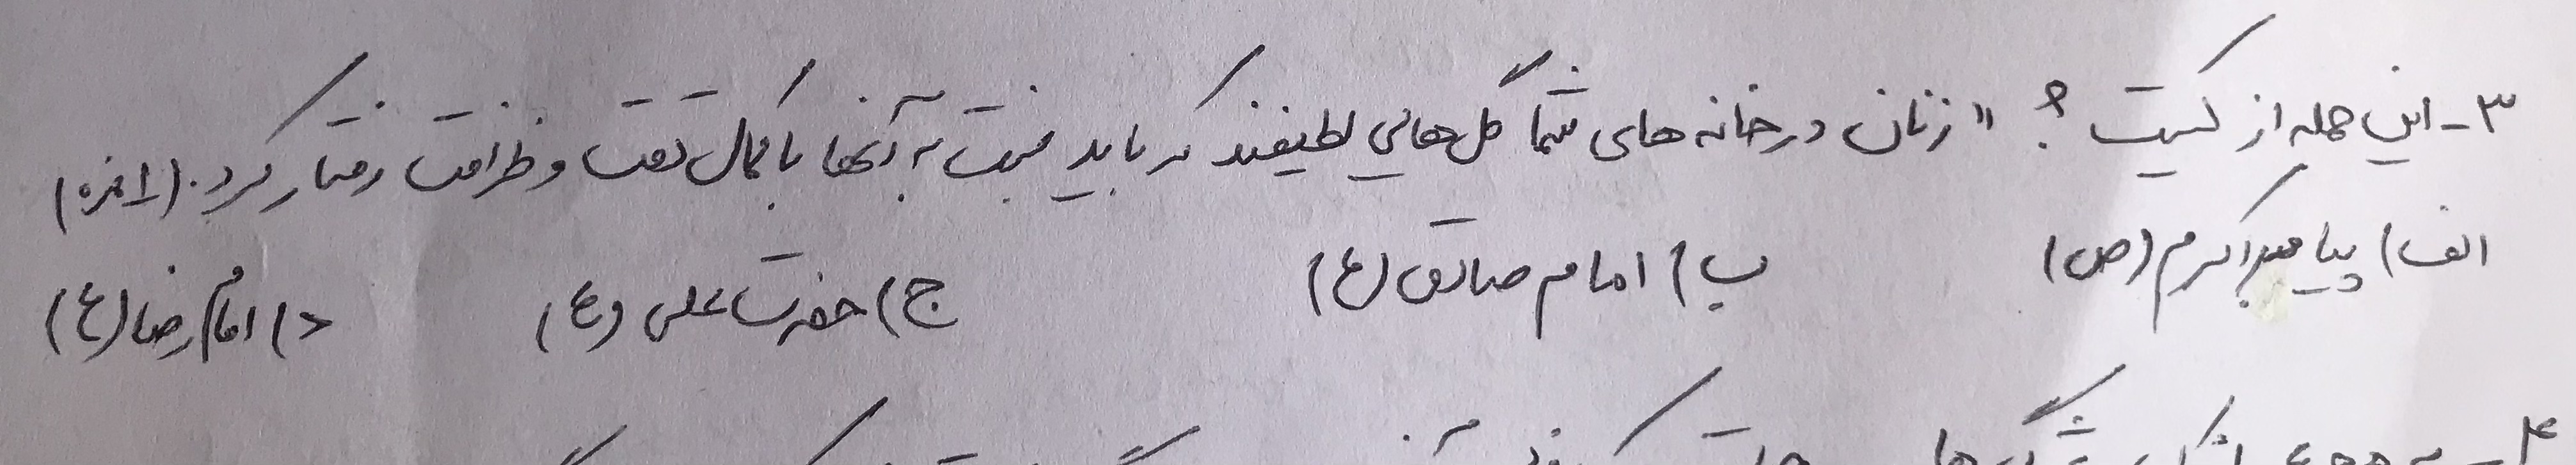 ۳- این جمله از کیست ؟ " زنان در خانه های شما گل هایی لطیفند که باید نسبت به آنها با کمال دقت و ظرافت رفتار کرد. (۱ نمره)
الف) پیامبر اکرم (ص) ب) امام صادق (ع) ج) حضرت علی (ع) د) امام رضا (ع)